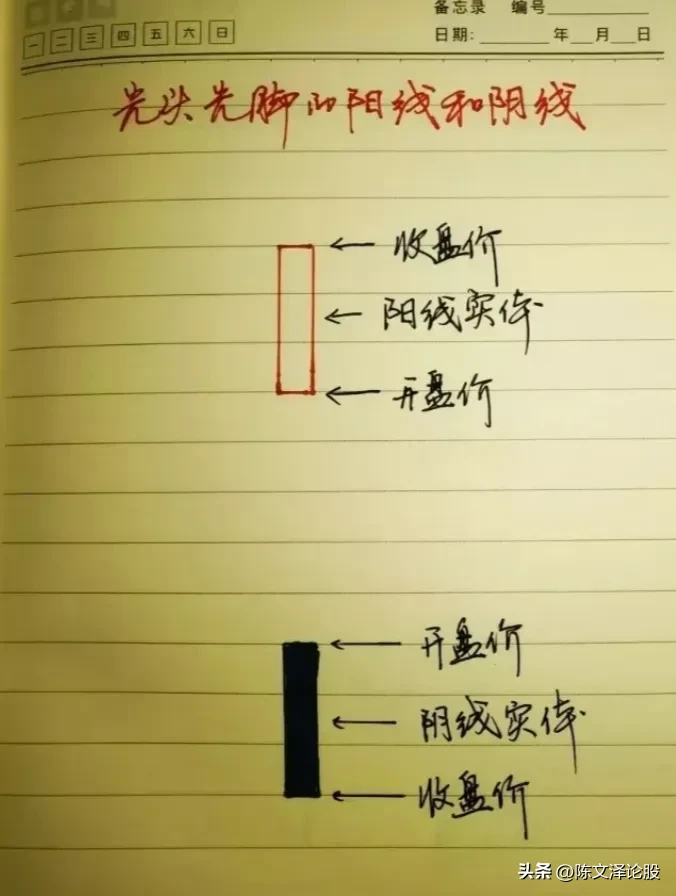 备忘录 编号
一 二 三 四 五 六 日 日期: 年 月 日
光头光脚的阳线和阴线
收盘价
阳线实体
开盘价
开盘价
阴线实体
收盘价
头条 @陈文泽论股